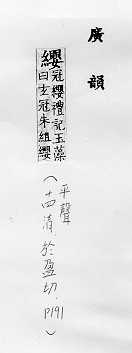 廣韻
纓冠纓禮記玉藻
曰玄冠朱組纓
(平聲
十四清於盈切.
P191)